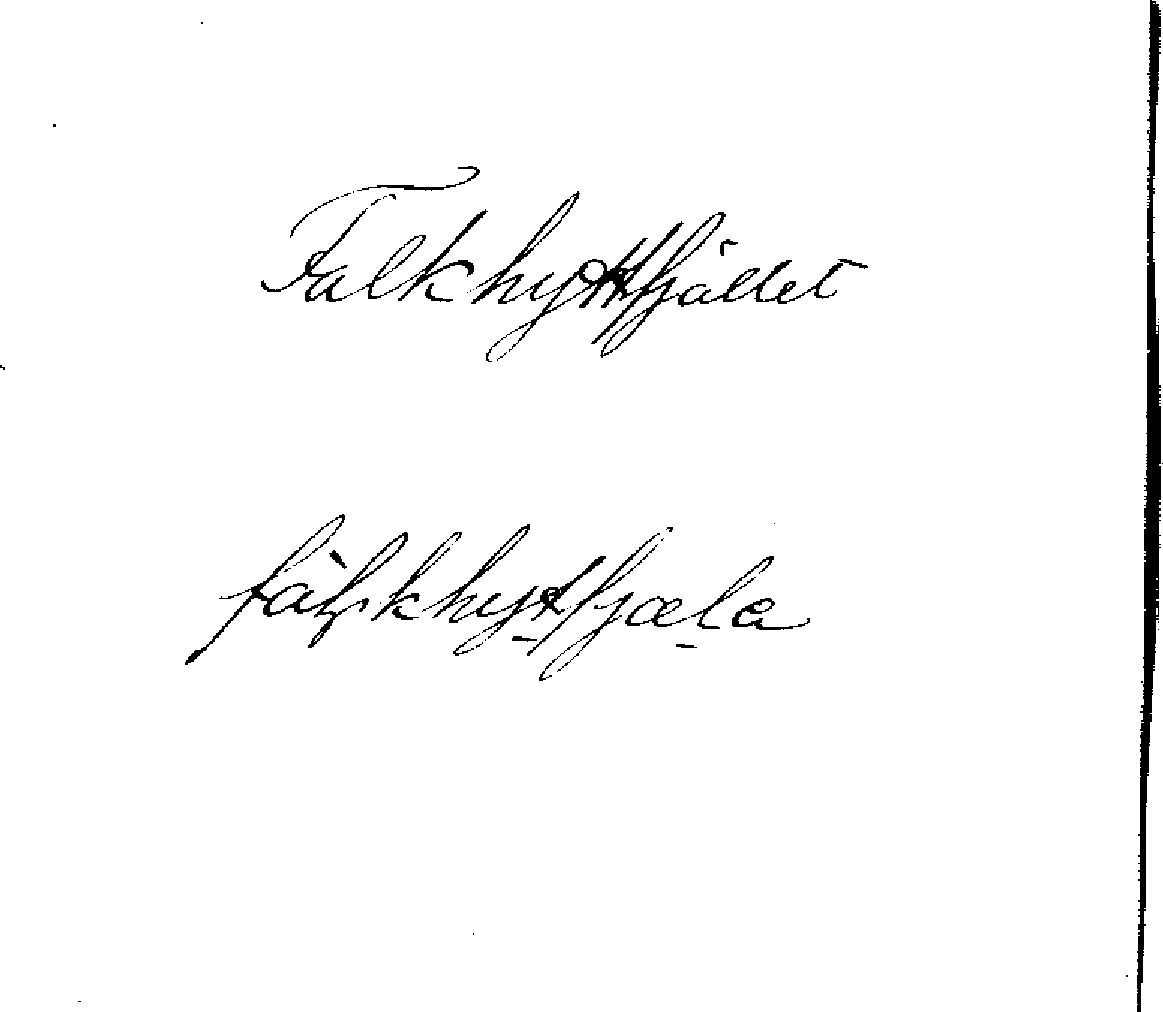 Falkhyttfjället
fàlkhytfjæla